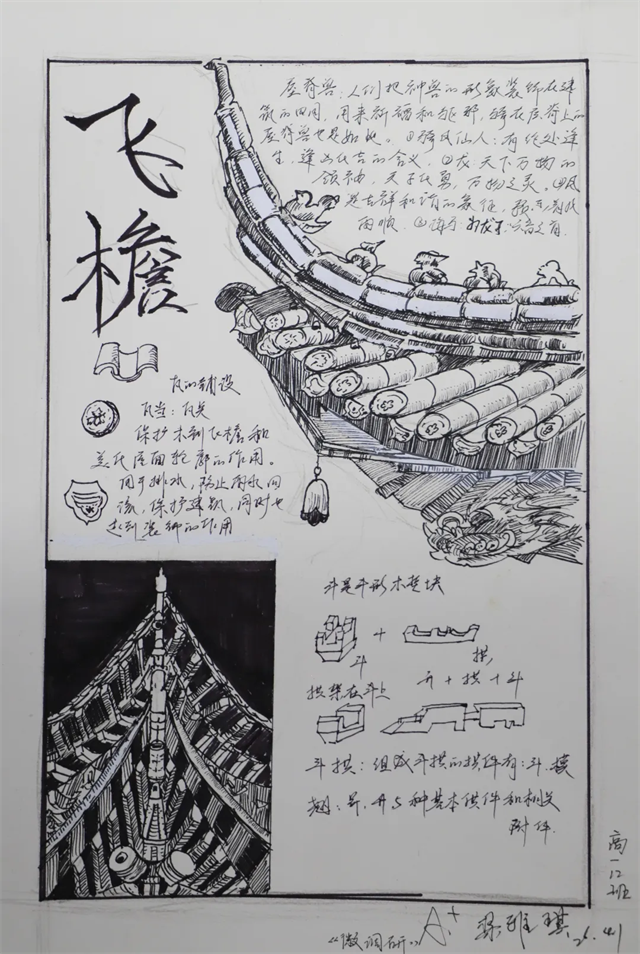 飞檐
屋脊兽：人们把神兽的形象装饰在建
筑的四周，用来祈福和辟邪，骑在屋脊上的
屋脊兽也是如此。①骑凤仙人：有绝处逢
生，逢凶化吉的含义。②龙 天下万物的
领袖，天子代，万物之灵。③凤
是吉祥和的象征，预示着风
调雨顺。
瓦的铺设
瓦当：瓦头
保护木制飞檐和
美化屋面轮廓的作用。
用于排水，防止雨水回
流，保护建筑，同时也
起到装饰的作用
斗是斗形木垫块
斗
拱
拱架在斗上
升+拱+斗
斗拱：组成斗拱的拱件有：斗、
翘、昂、升5种基本拱件和相关
附件.
高一12班
“微调研”
A+
26.4.1